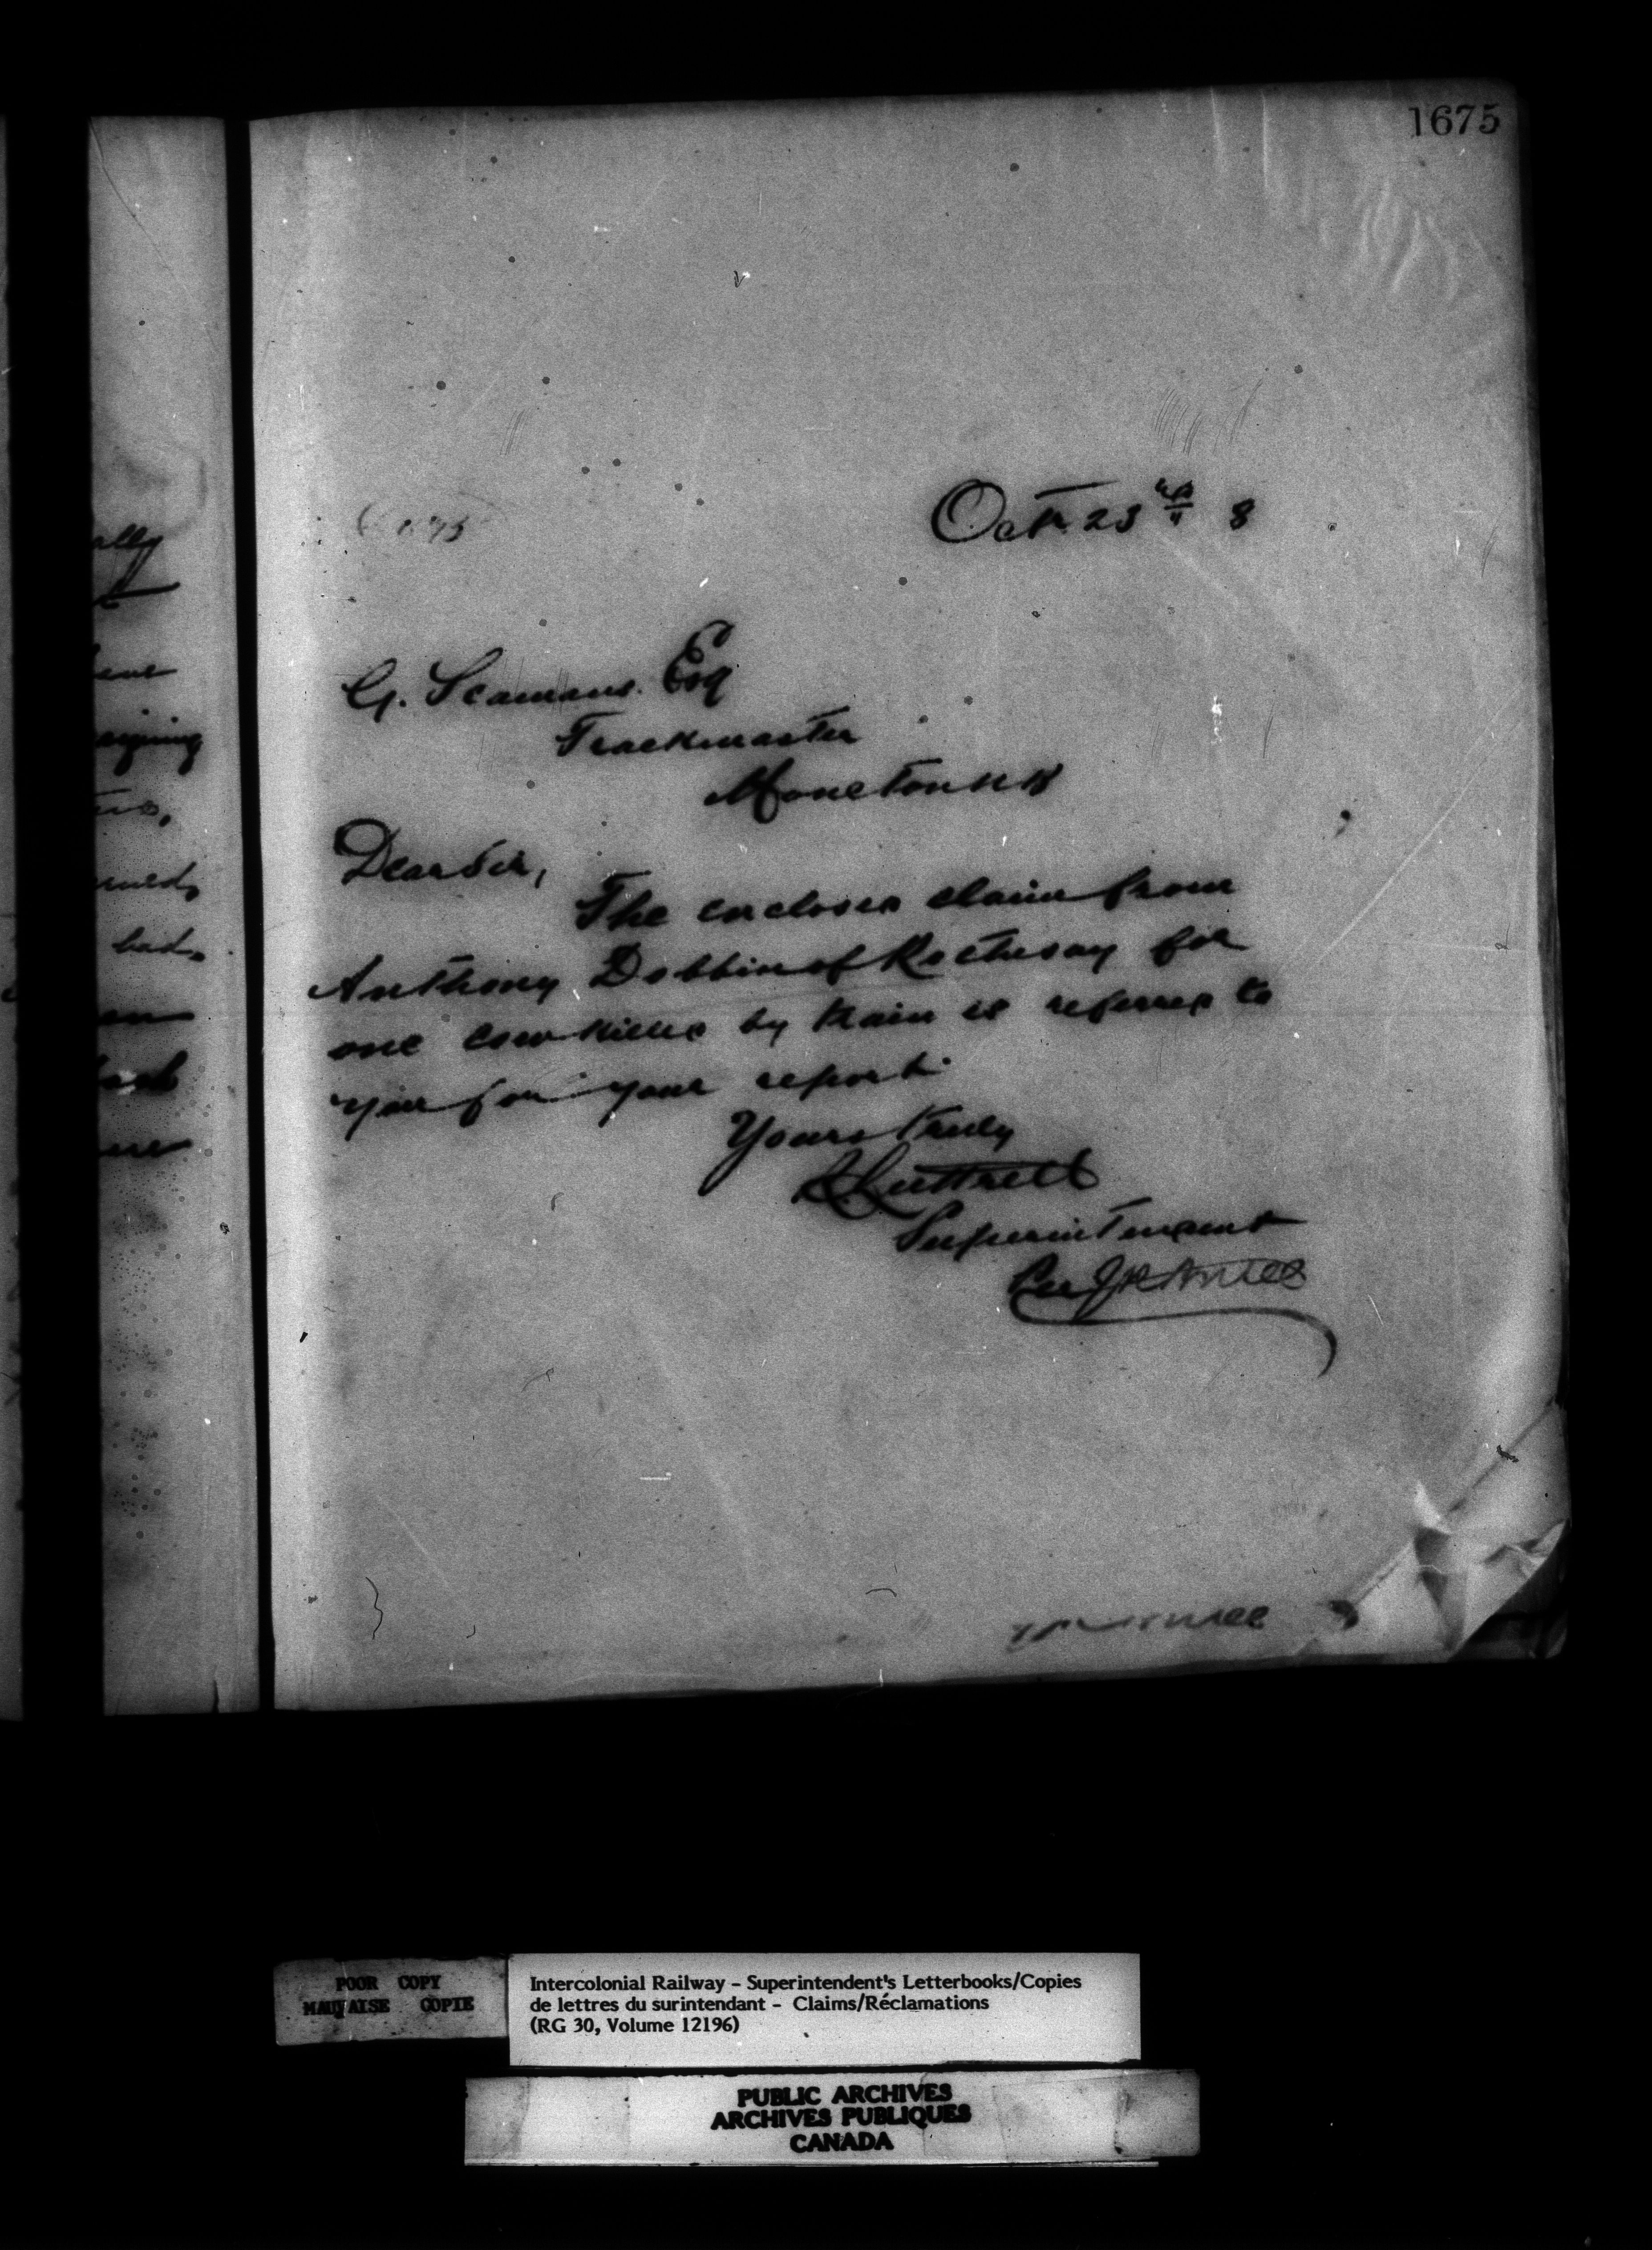 1675
Octr. 23rd 8
G. Seamans. Esq
Trackmaster
Moncton NB
Dear Sir,
The enclosed claim from
Anthony Dobbin of Rothesay for
one cow killed by train is referred to
you for your report.
Yours truly
Luttrell
Superintendent
Per
ally
bad,
POOR COPY
MAUVAISE COPIE
Intercolonial Railway – Superintendent's Letterbooks/Copies
de lettres du surintendant – Claims/Réclamations
(RG 30, Volume 12196)
PUBLIC ARCHIVES
ARCHIVES PUBLIQUES
CANADA